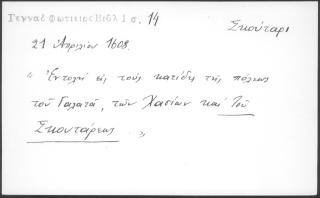 Γενναδ Φωτιειος Βιβλ 1 σ. 14
Σκούταρι
21 Ἀπριλίου 1608.
" Ἐντολή εἰς τοὺς κατίδες τῆς πόλεως
τοῦ Γαλατᾶ, τῶν Χασίων καὶ Τοῦ
Σκουτάρεως "